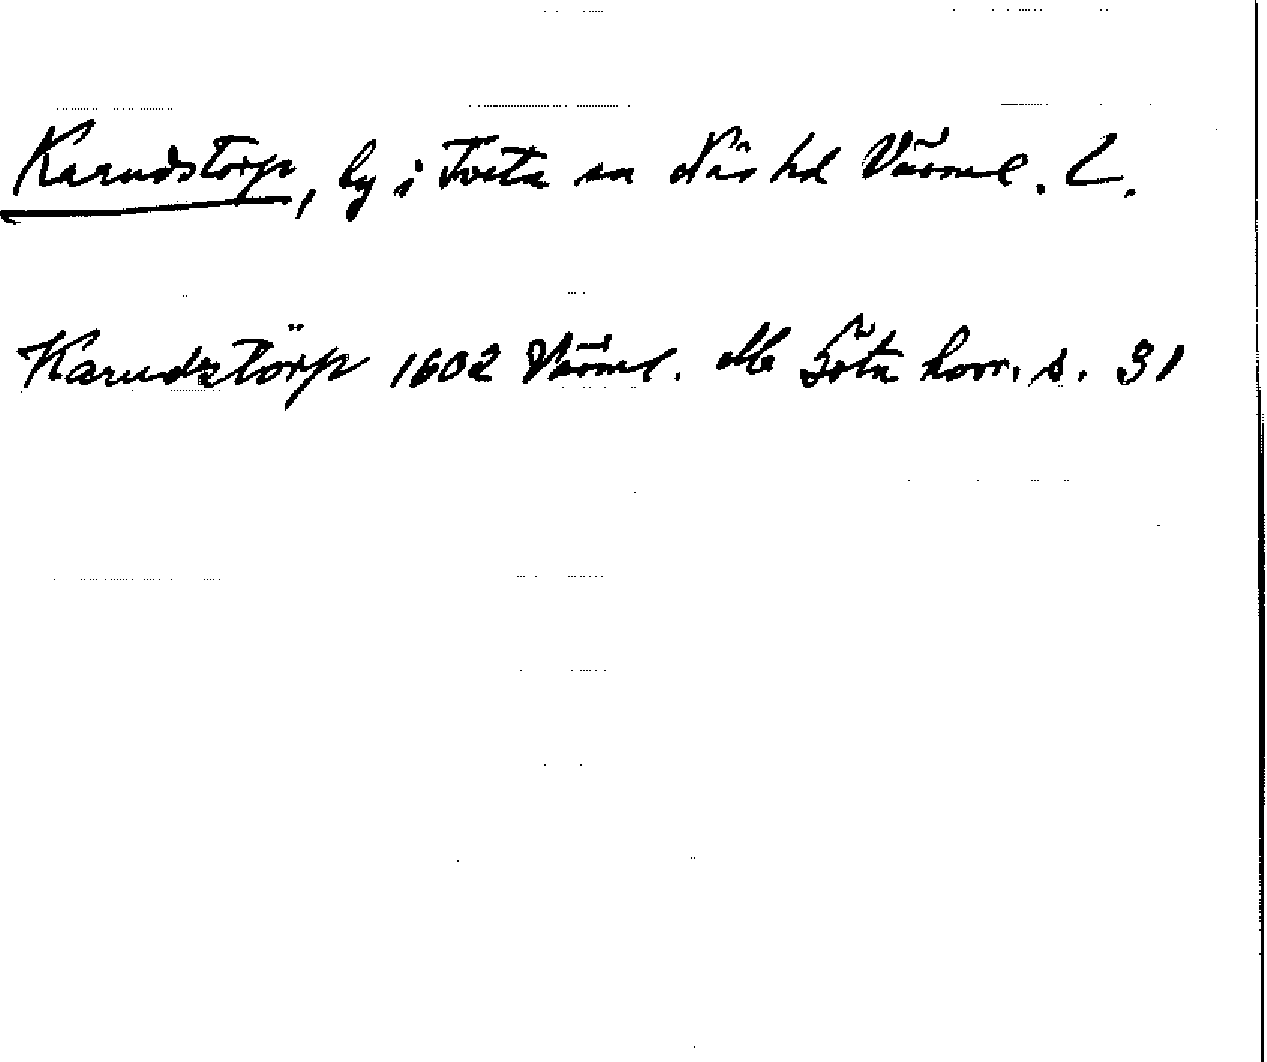 Karudstorp, by i Tveta sn Näs hd Värml. L.
Karudztörp 1602 Värml. Göta horr. s. 31